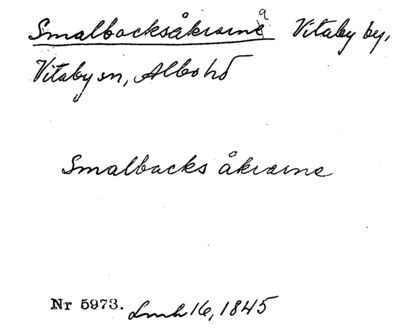 Smalbacksåkrarna Vitaby by,
Vitaby sn, Albo hd
Smalbacks åkrarne
Nr 5973. Lmh 16, 1845